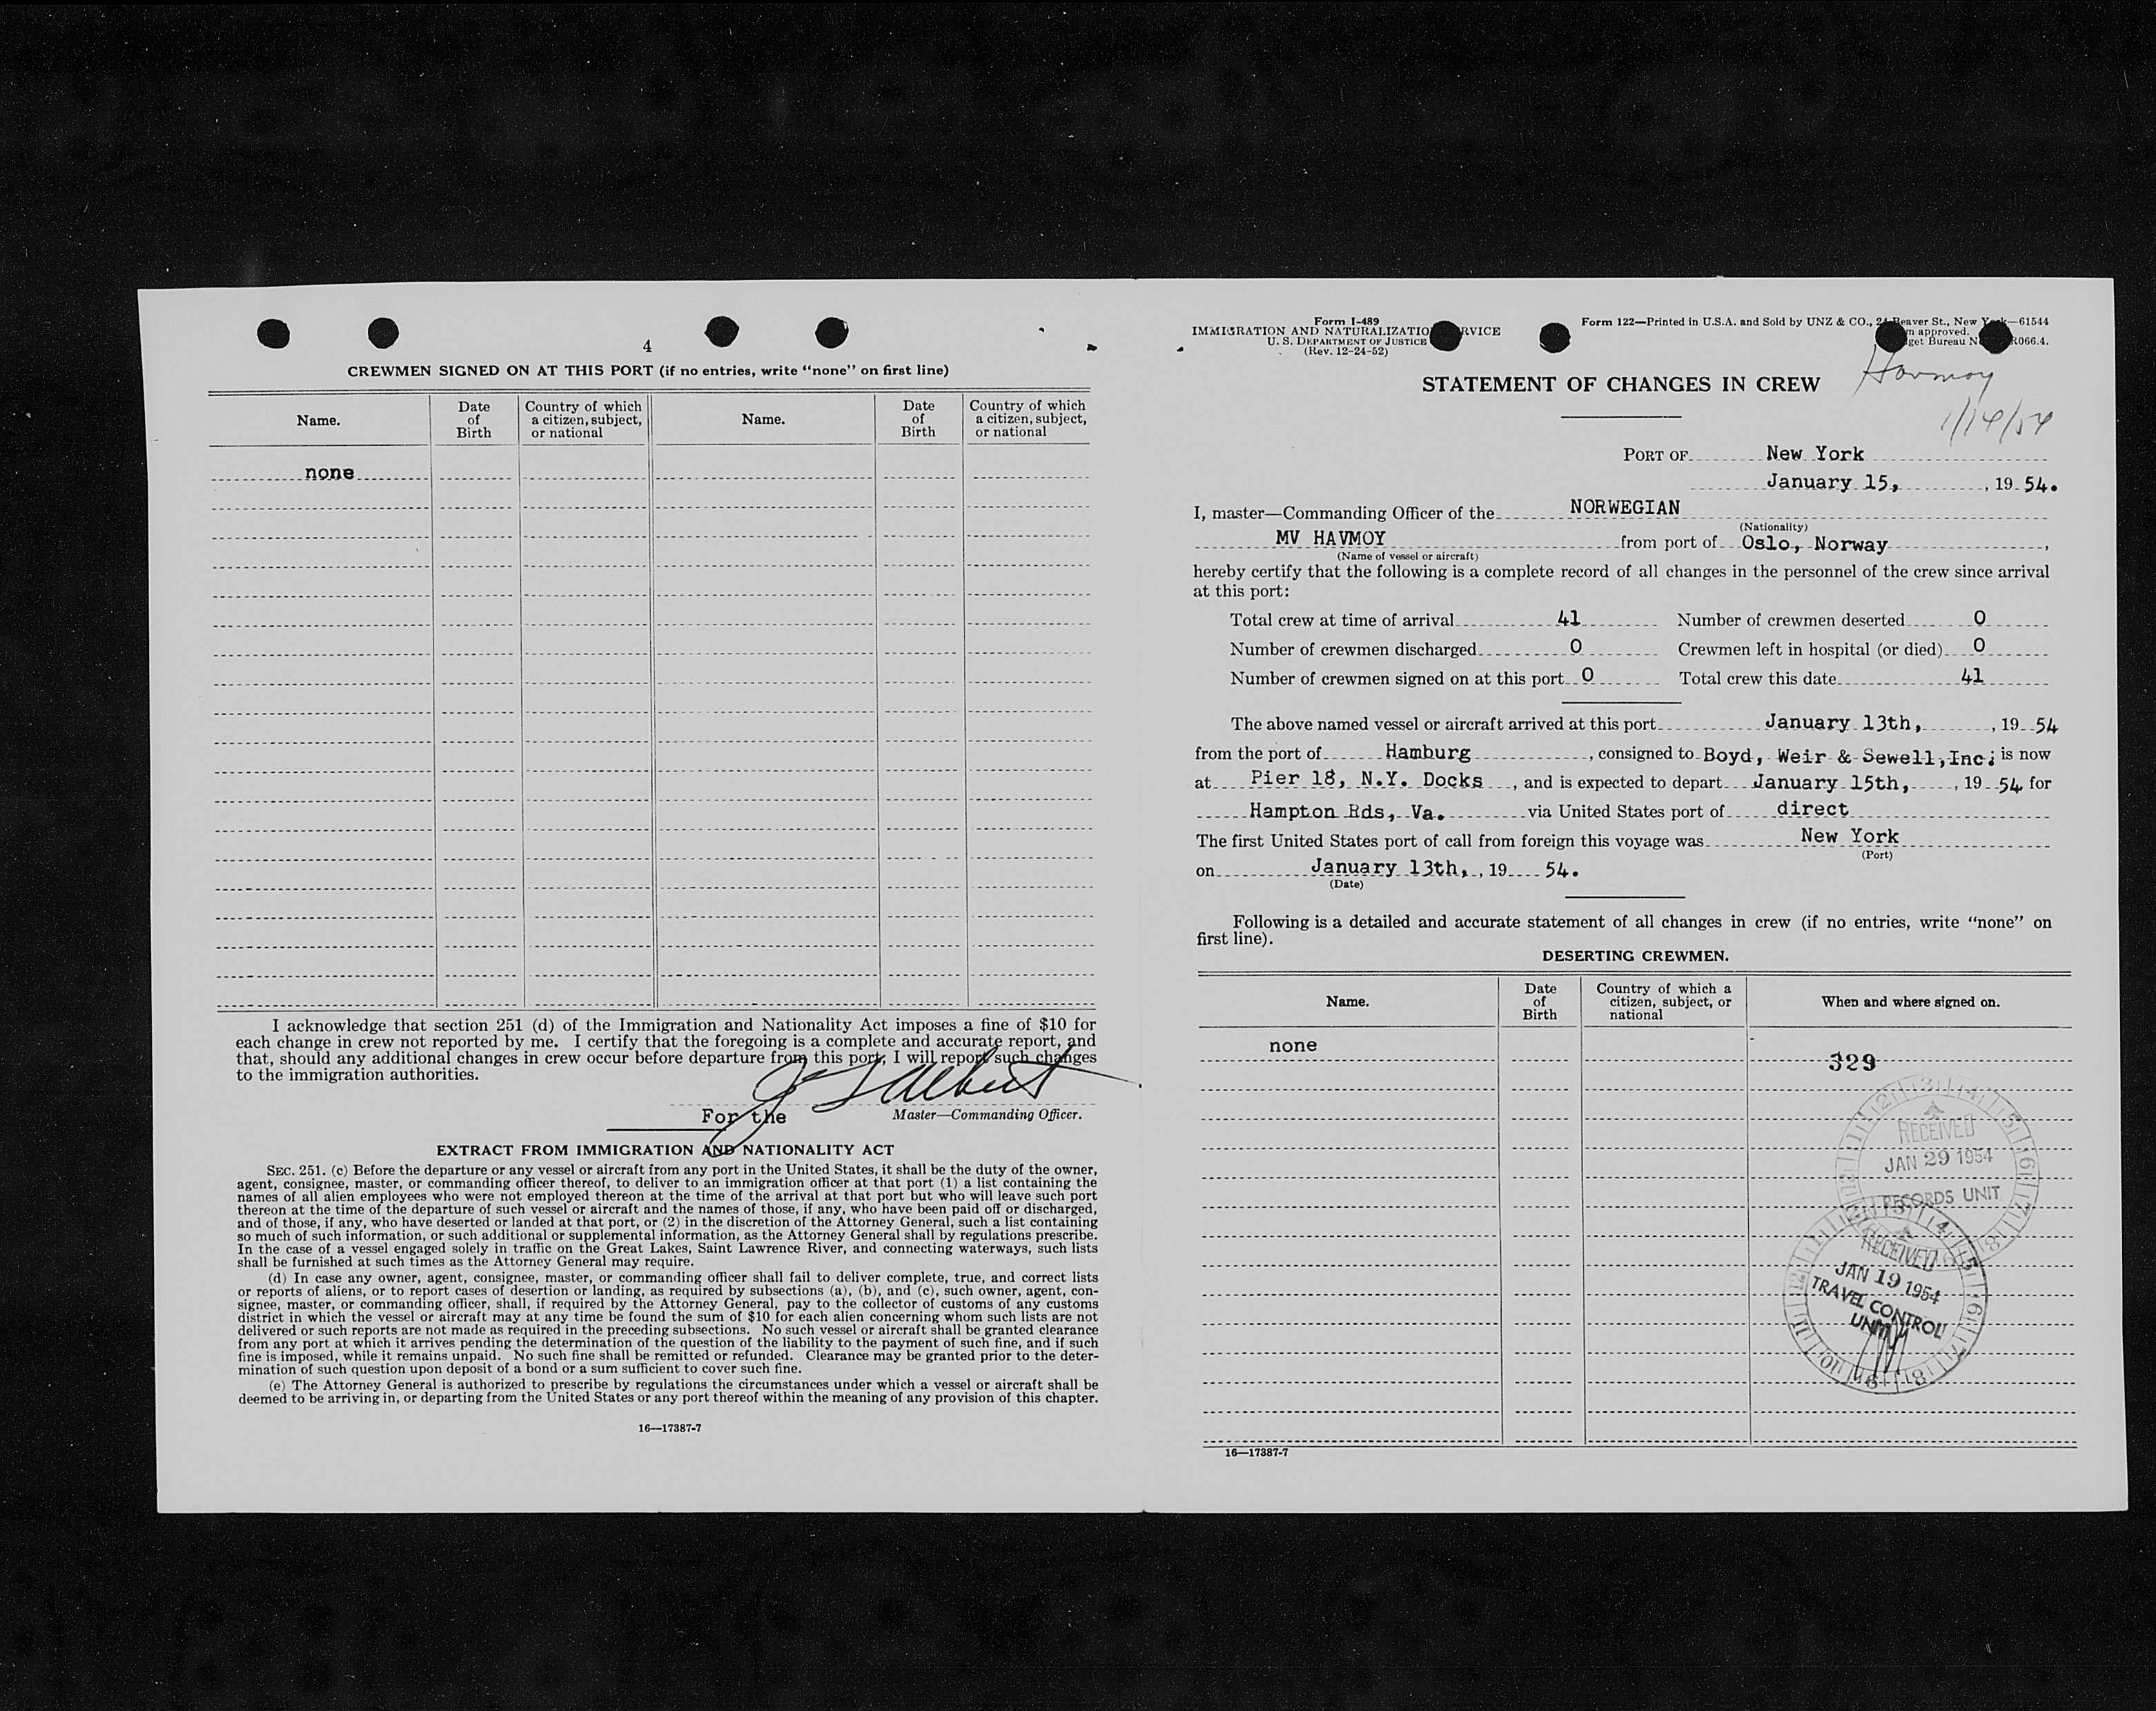 4
CREWMEN SIGNED ON AT THIS PORT (if no entries, write “none” on first line)
Name. Date of Birth Country of which a citizen, subject, or national Name. Date of Birth Country of which a citizen, subject, or national
none
I acknowledge that section 251 (d) of the Immigration and Nationality Act imposes a fine of $10 for
each change in crew not reported by me. I certify that the foregoing is a complete and accurate report, and
that, should any additional changes in crew occur before departure from this port, I will report such changes
to the immigration authorities.
For the Master—Commanding Officer.
EXTRACT FROM IMMIGRATION AND NATIONALITY ACT
SEC. 251. (c) Before the departure or any vessel or aircraft from any port in the United States, it shall be the duty of the owner,
agent, consignee, master, or commanding officer thereof, to deliver to an immigration officer at that port (1) a list containing the
names of all alien employees who were not employed thereon at the time of the arrival at that port but who will leave such port
thereon at the time of the departure of such vessel or aircraft and the names of those, if any, who have been paid off or discharged,
and of those, if any, who have deserted or landed at that port, or (2) in the discretion of the Attorney General, such a list containing
so much of such information, or such additional or supplemental information, as the Attorney General shall by regulations prescribe.
In the case of a vessel engaged solely in traffic on the Great Lakes, Saint Lawrence River, and connecting waterways, such lists
shall be furnished at such times as the Attorney General may require.
(d) In case any owner, agent, consignee, master, or commanding officer shall fail to deliver complete, true, and correct lists
or reports of aliens, or to report cases of desertion or landing, as required by subsections (a), (b), and (c), such owner, agent, con-
signee, master, or commanding officer, shall, if required by the Attorney General, pay to the collector of customs of any customs
district in which the vessel or aircraft may at any time be found the sum of $10 for each alien concerning whom such lists are not
delivered or such reports are not made as required in the preceding subsections. No such vessel or aircraft shall be granted clearance
from any port at which it arrives pending the determination of the question of the liability to the payment of such fine, and if such
fine is imposed, while it remains unpaid. No such fine shall be remitted or refunded. Clearance may be granted prior to the deter-
mination of such question upon deposit of a bond or a sum sufficient to cover such fine.
(e) The Attorney General is authorized to prescribe by regulations the circumstances under which a vessel or aircraft shall be
deemed to be arriving in, or departing from the United States or any port thereof within the meaning of any provision of this chapter.
16—17387-7
Form I-489
IMMIGRATION AND NATURALIZATIO RVICE
U. S. DEPARTMENT OF JUSTICE
(Rev. 12-24-52)
Form 122—Printed in U.S.A. and Sold by UNZ & CO., 24 Beaver St., New York—61544
m approved.
get Bureau N 066.4.
Havmoy
1/14/54
STATEMENT OF CHANGES IN CREW
PORT OF New York
January 15, , 19 54.
I, master—Commanding Officer of the NORWEGIAN
(Nationality)
MV HAVMOY from port of Oslo, Norway ,
(Name of vessel or aircraft)
hereby certify that the following is a complete record of all changes in the personnel of the crew since arrival
at this port:
Total crew at time of arrival 41 Number of crewmen deserted 0
Number of crewmen discharged 0 Crewmen left in hospital (or died) 0
Number of crewmen signed on at this port 0 Total crew this date 41
The above named vessel or aircraft arrived at this port January 13th, , 19 54
from the port of Hamburg , consigned to Boyd, Weir & Sewell,Inc; is now
at Pier 18, N.Y. Docks , and is expected to depart January 15th, , 19 54 for
Hampton Rds, Va. via United States port of direct
The first United States port of call from foreign this voyage was New York
(Port)
on January 13th, , 19 54.
(Date)
Following is a detailed and accurate statement of all changes in crew (if no entries, write “none” on
first line).
DESERTING CREWMEN.
Name. Date of Birth Country of which a citizen, subject, or national When and where signed on.
none
329
RECEIVED
JAN 29 1954
RECORDS UNIT
RECEIVED
JAN 19 1954
TRAVEL CONTROL
UNIT
16—17387-7